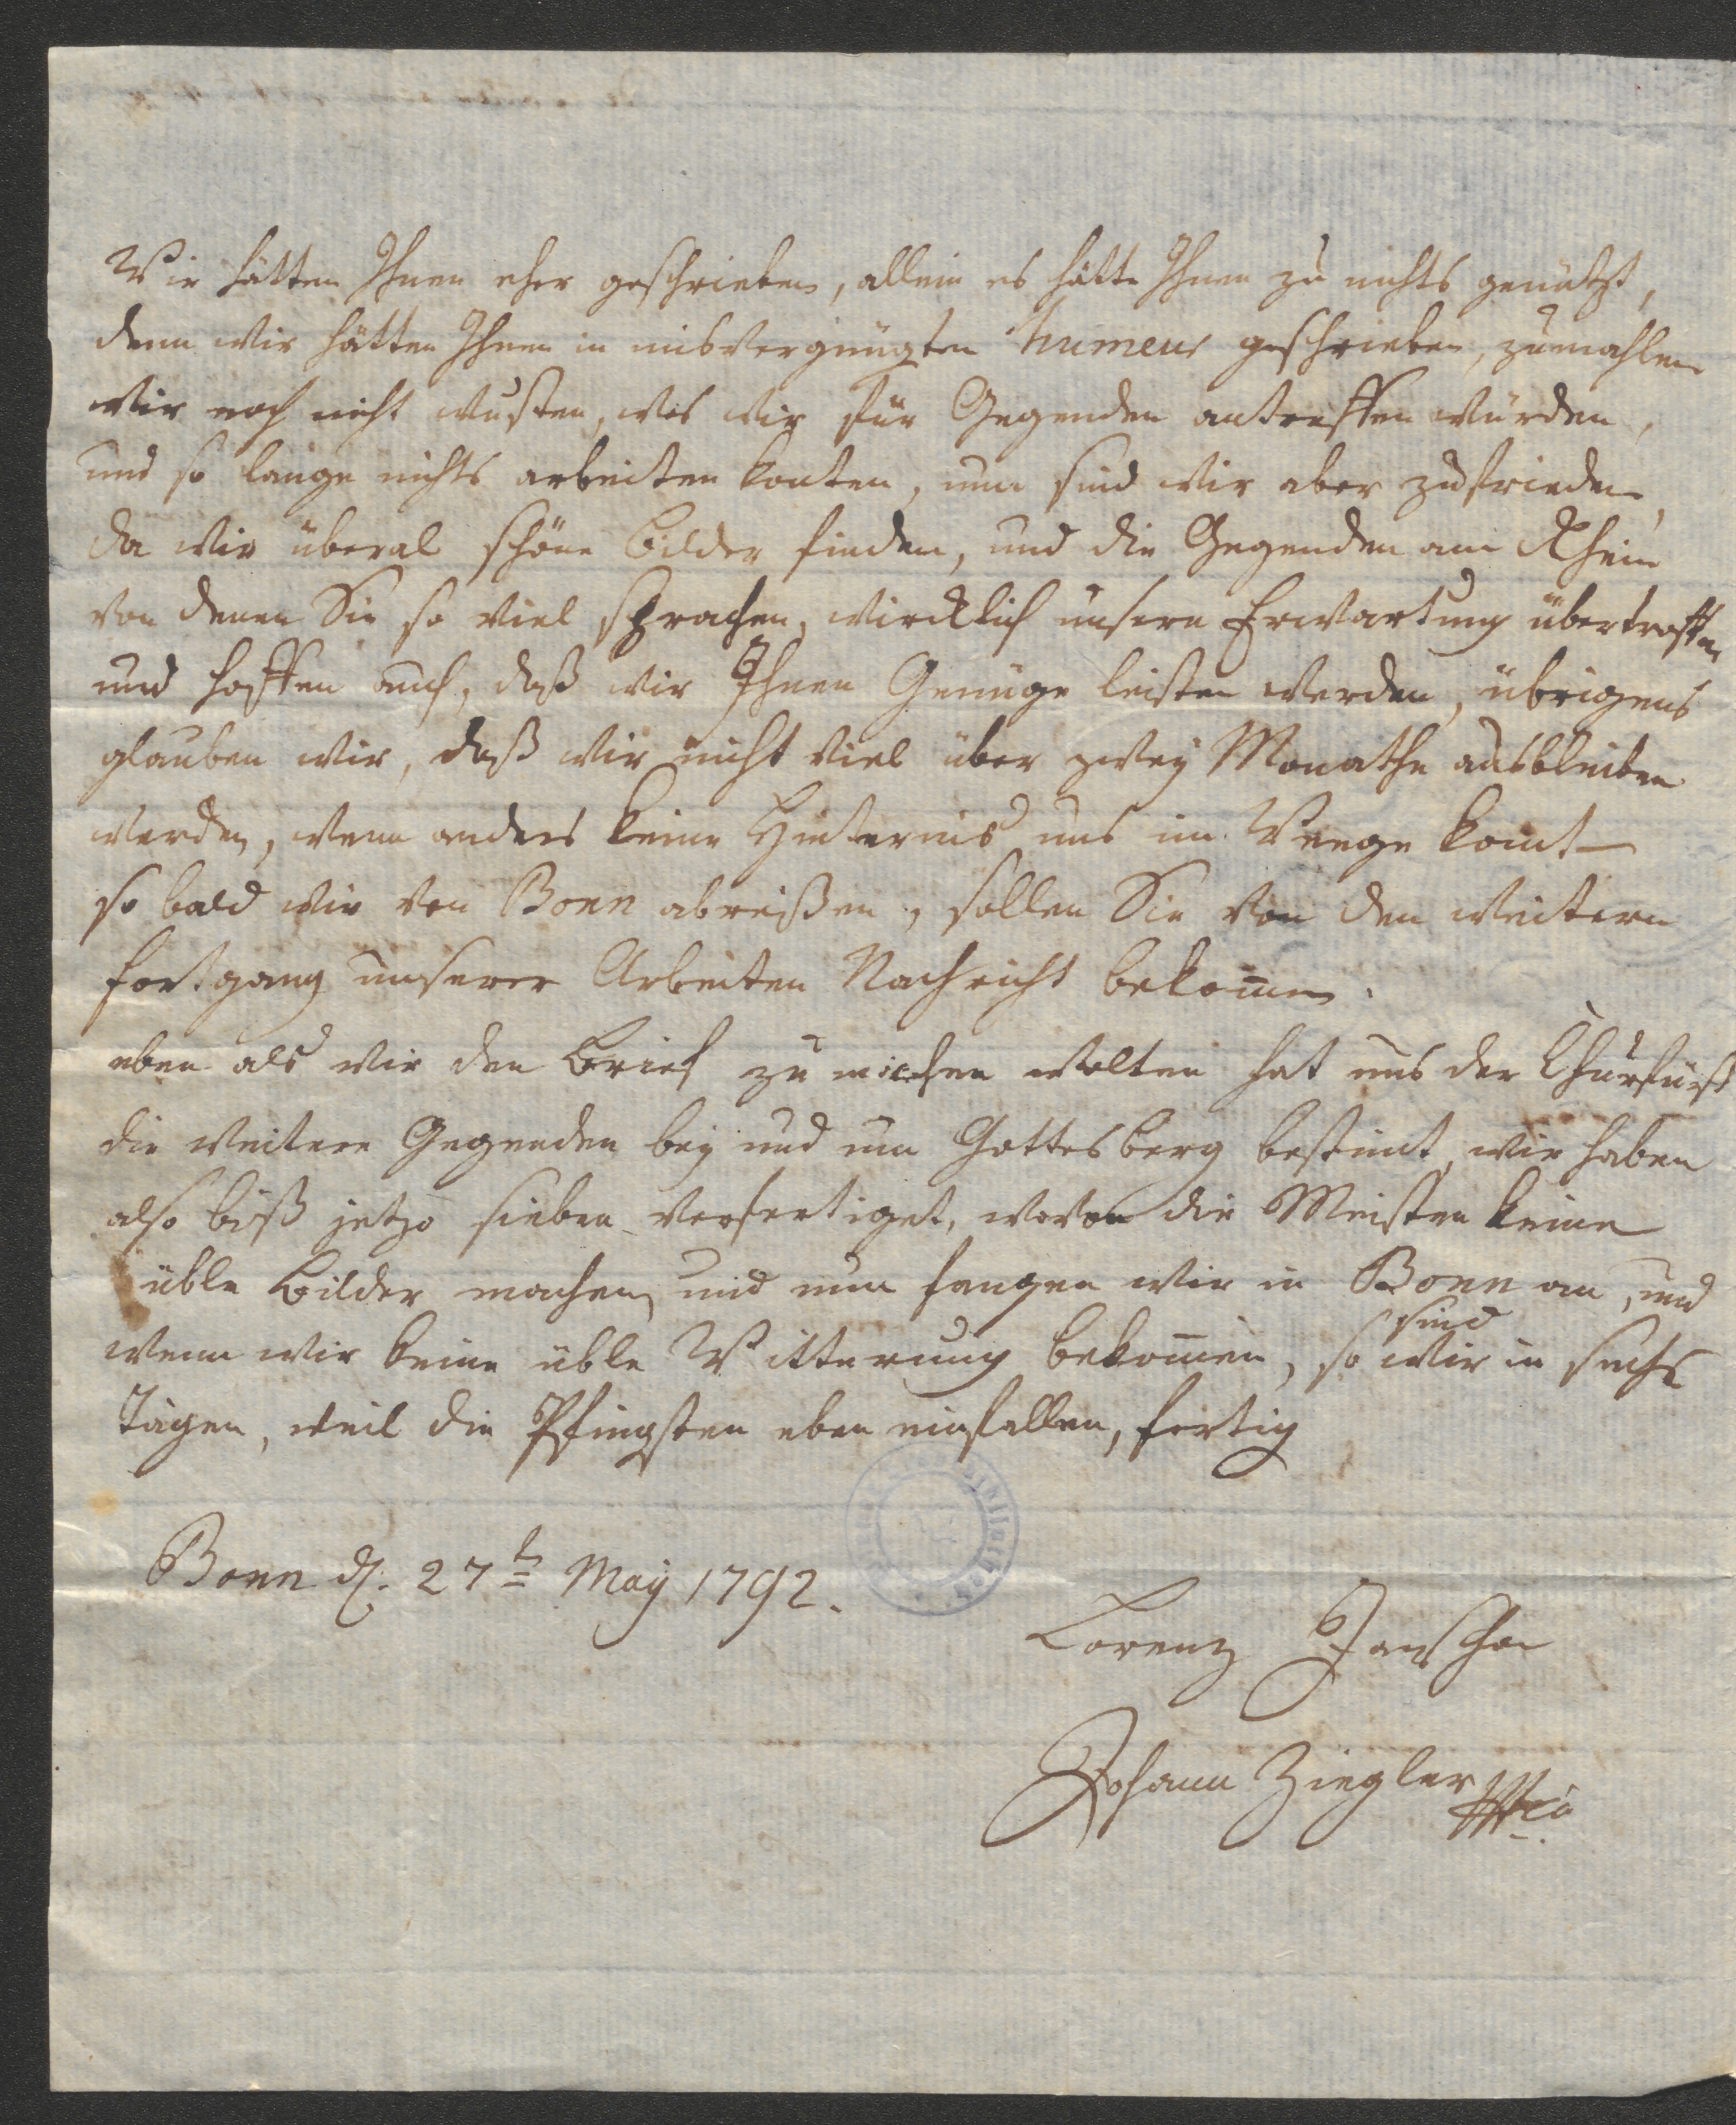 Wir hätten Ihnen eher geschrieben, allein es hätte Ihnen zu nichts genützt,
denn wir hätten Ihnen in misvergnügten humeur geschrieben, zumahlen
wir noch nicht wusten, was wir für Gegenden antreffen würden,
und so lange nichts arbeiten konten, nun sind wir aber zufrieden,
da wir überal schöne Bilder finden, und die Gegenden am Rhein
von denen Sie so viel sprachen, wircklich unsere Erwartung übertroffen
und hoffen auch, daß wir Ihnen Genüge leisten werden, übrigens
glauben wir, daß wir nicht viel über zwey Monathe ausbleiben
werden, wenn anders keine Hinternis uns im Weege komt
so bald wir von Bonn abreißen, sollen Sie von den weitern
fortgang unserer Arbeiten Nachricht bekommen.
eben als wir den Brief zu machen wolten hat uns der Churfürst
die weitere Gegenden bey und um Gottesberg bestimt, wir haben
also biß jetzo sieben verfertiget, wovon die Meisten keine
üble Bilder machen, und nun fangen wir in Bonn an, und
wenn wir keine üble Witterung bekommen, so sind wir in sechs
Tägen, weil die Pfingsten eben einfallen, fertig
Bonn d. 27t May 1792.
Lorenz Janscha
Johann Ziegler